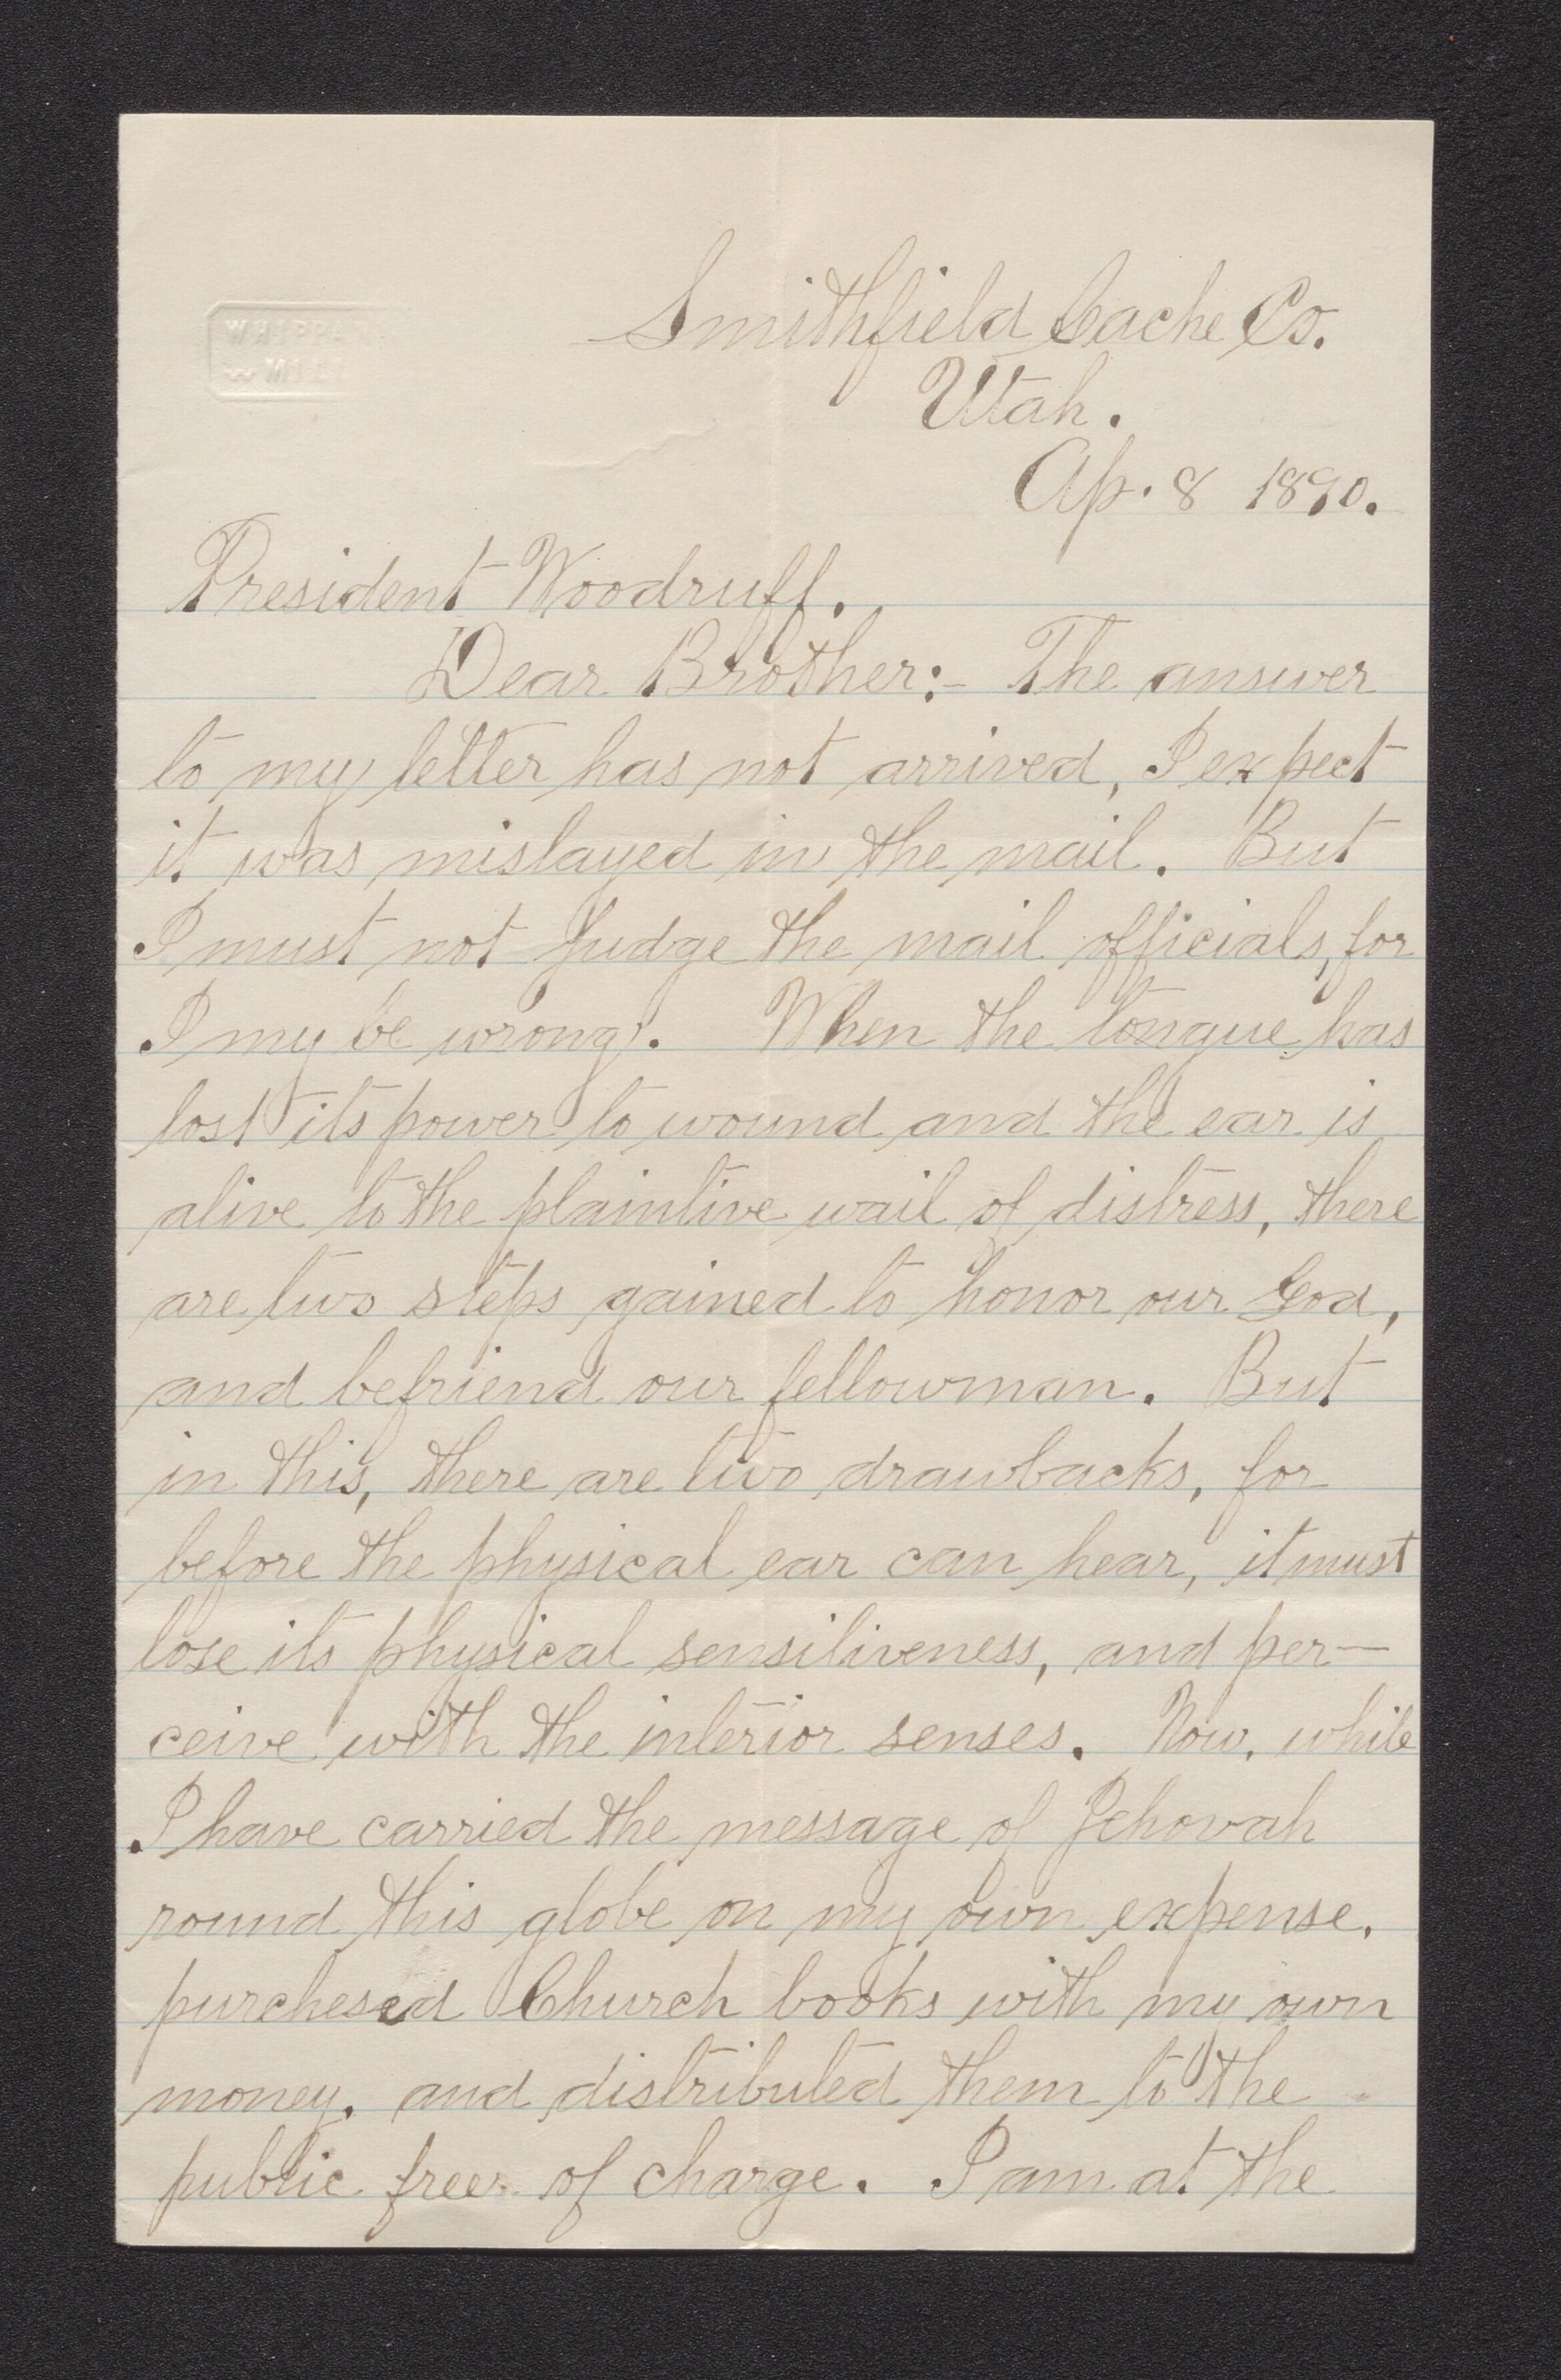 WHIPP
MIL
Smithfield Cache Co.
Utah.
Ap. 8 1890.
President Woodruff.
Dear Brother:- The answer
to my letter has not arrived, I expect
it was mislayed in the mail. But
I must not Judge the mail officials, for
I my be wrong. When the tongue has
lost its power to wound and the ear is
alive to the plaintive wail of distress, there
are two steps gained to honor our God,
and befriend our fellowman. But
in this, there are two drawbacks, for
before the physical ear can hear, it must
lose its physical sensitiveness, and per-
ceive with the interior senses. Now, while
I have carried the message of Jehovah
round this globe on my own expense,
purchesed Church books with my own
money, and distributed them to the
public free of charge. I am at the